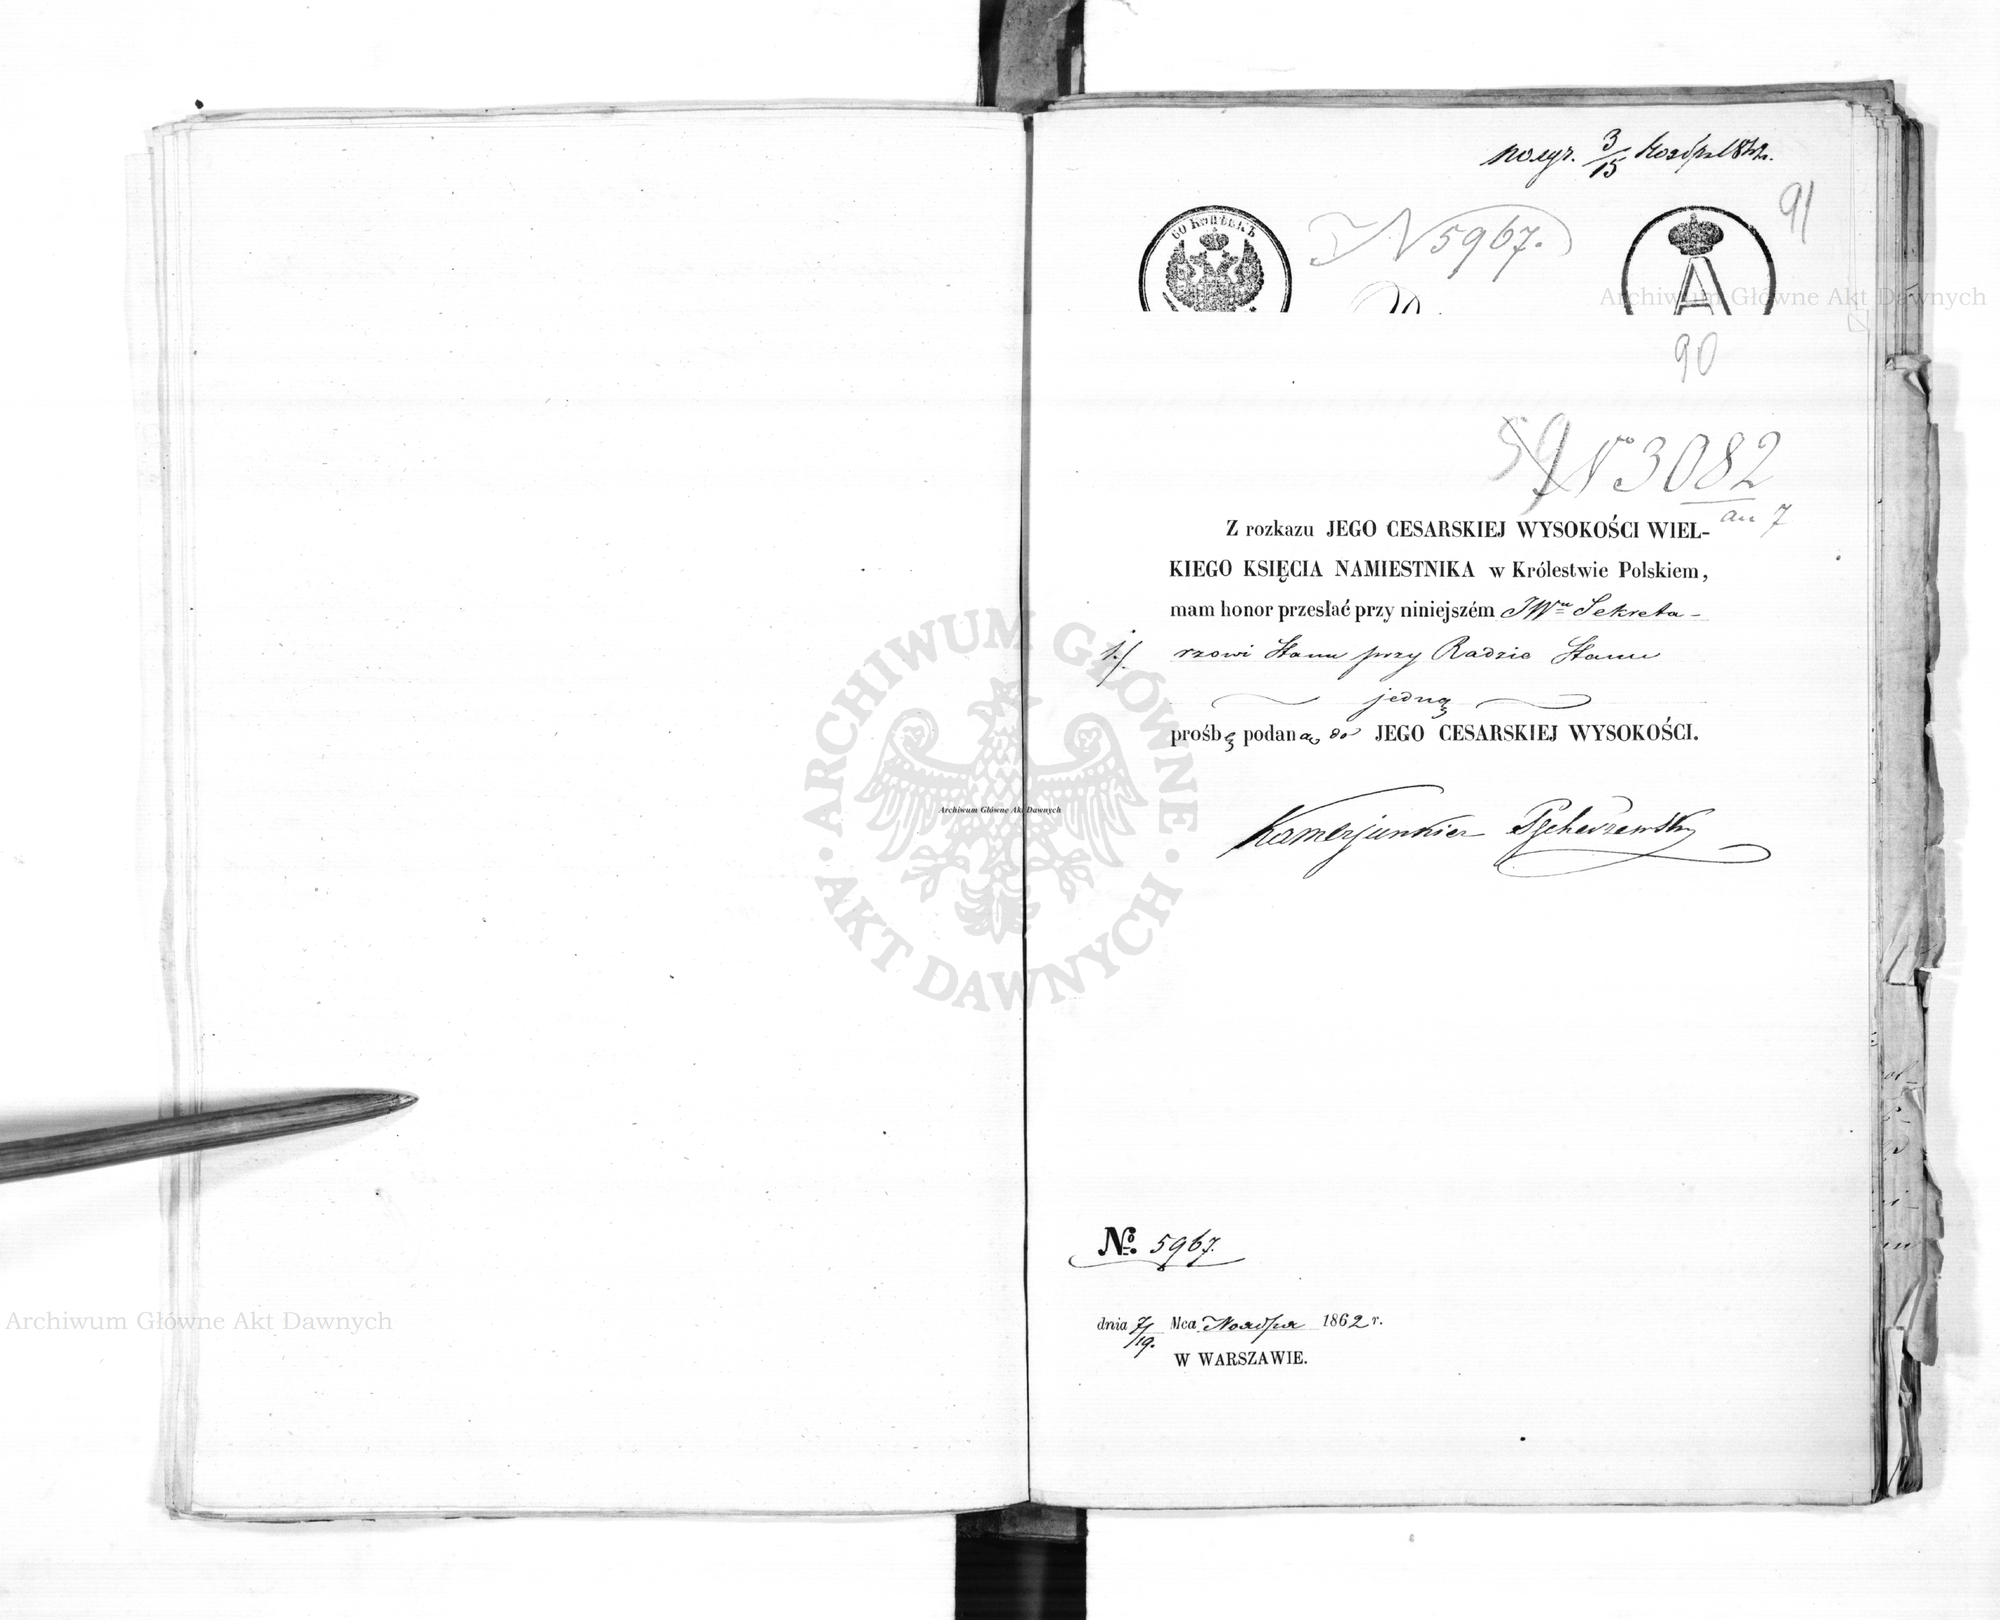 3/15 Ноября 1862.
60 КОПѢЕКЪ
N 5967.
91
A
Archiwum Główne Akt Dawnych
90
59
No 3082
an 7
Z rozkazu JEGO CESARSKIEJ WYSOKOŚCI WIEL-
KIEGO KSIĘCIA NAMIESTNIKA w Królestwie Polskiem,
mam honor przesłać przy niniejszém JWu Sekreta-
1./. rzowi Stanu przy Radzie Stanu
jedną
prośbę podaną do JEGO CESARSKIEJ WYSOKOŚCI.
Kamerjunkier
№ 5967.
dnia 7/19. Mca Noabra 1862 r.
W WARSZAWIE.
ARCHIWUM GŁÓWNE
AKT DAWNYCH
Archiwum Główne Akt Dawnych
Archiwum Główne Akt Dawnych